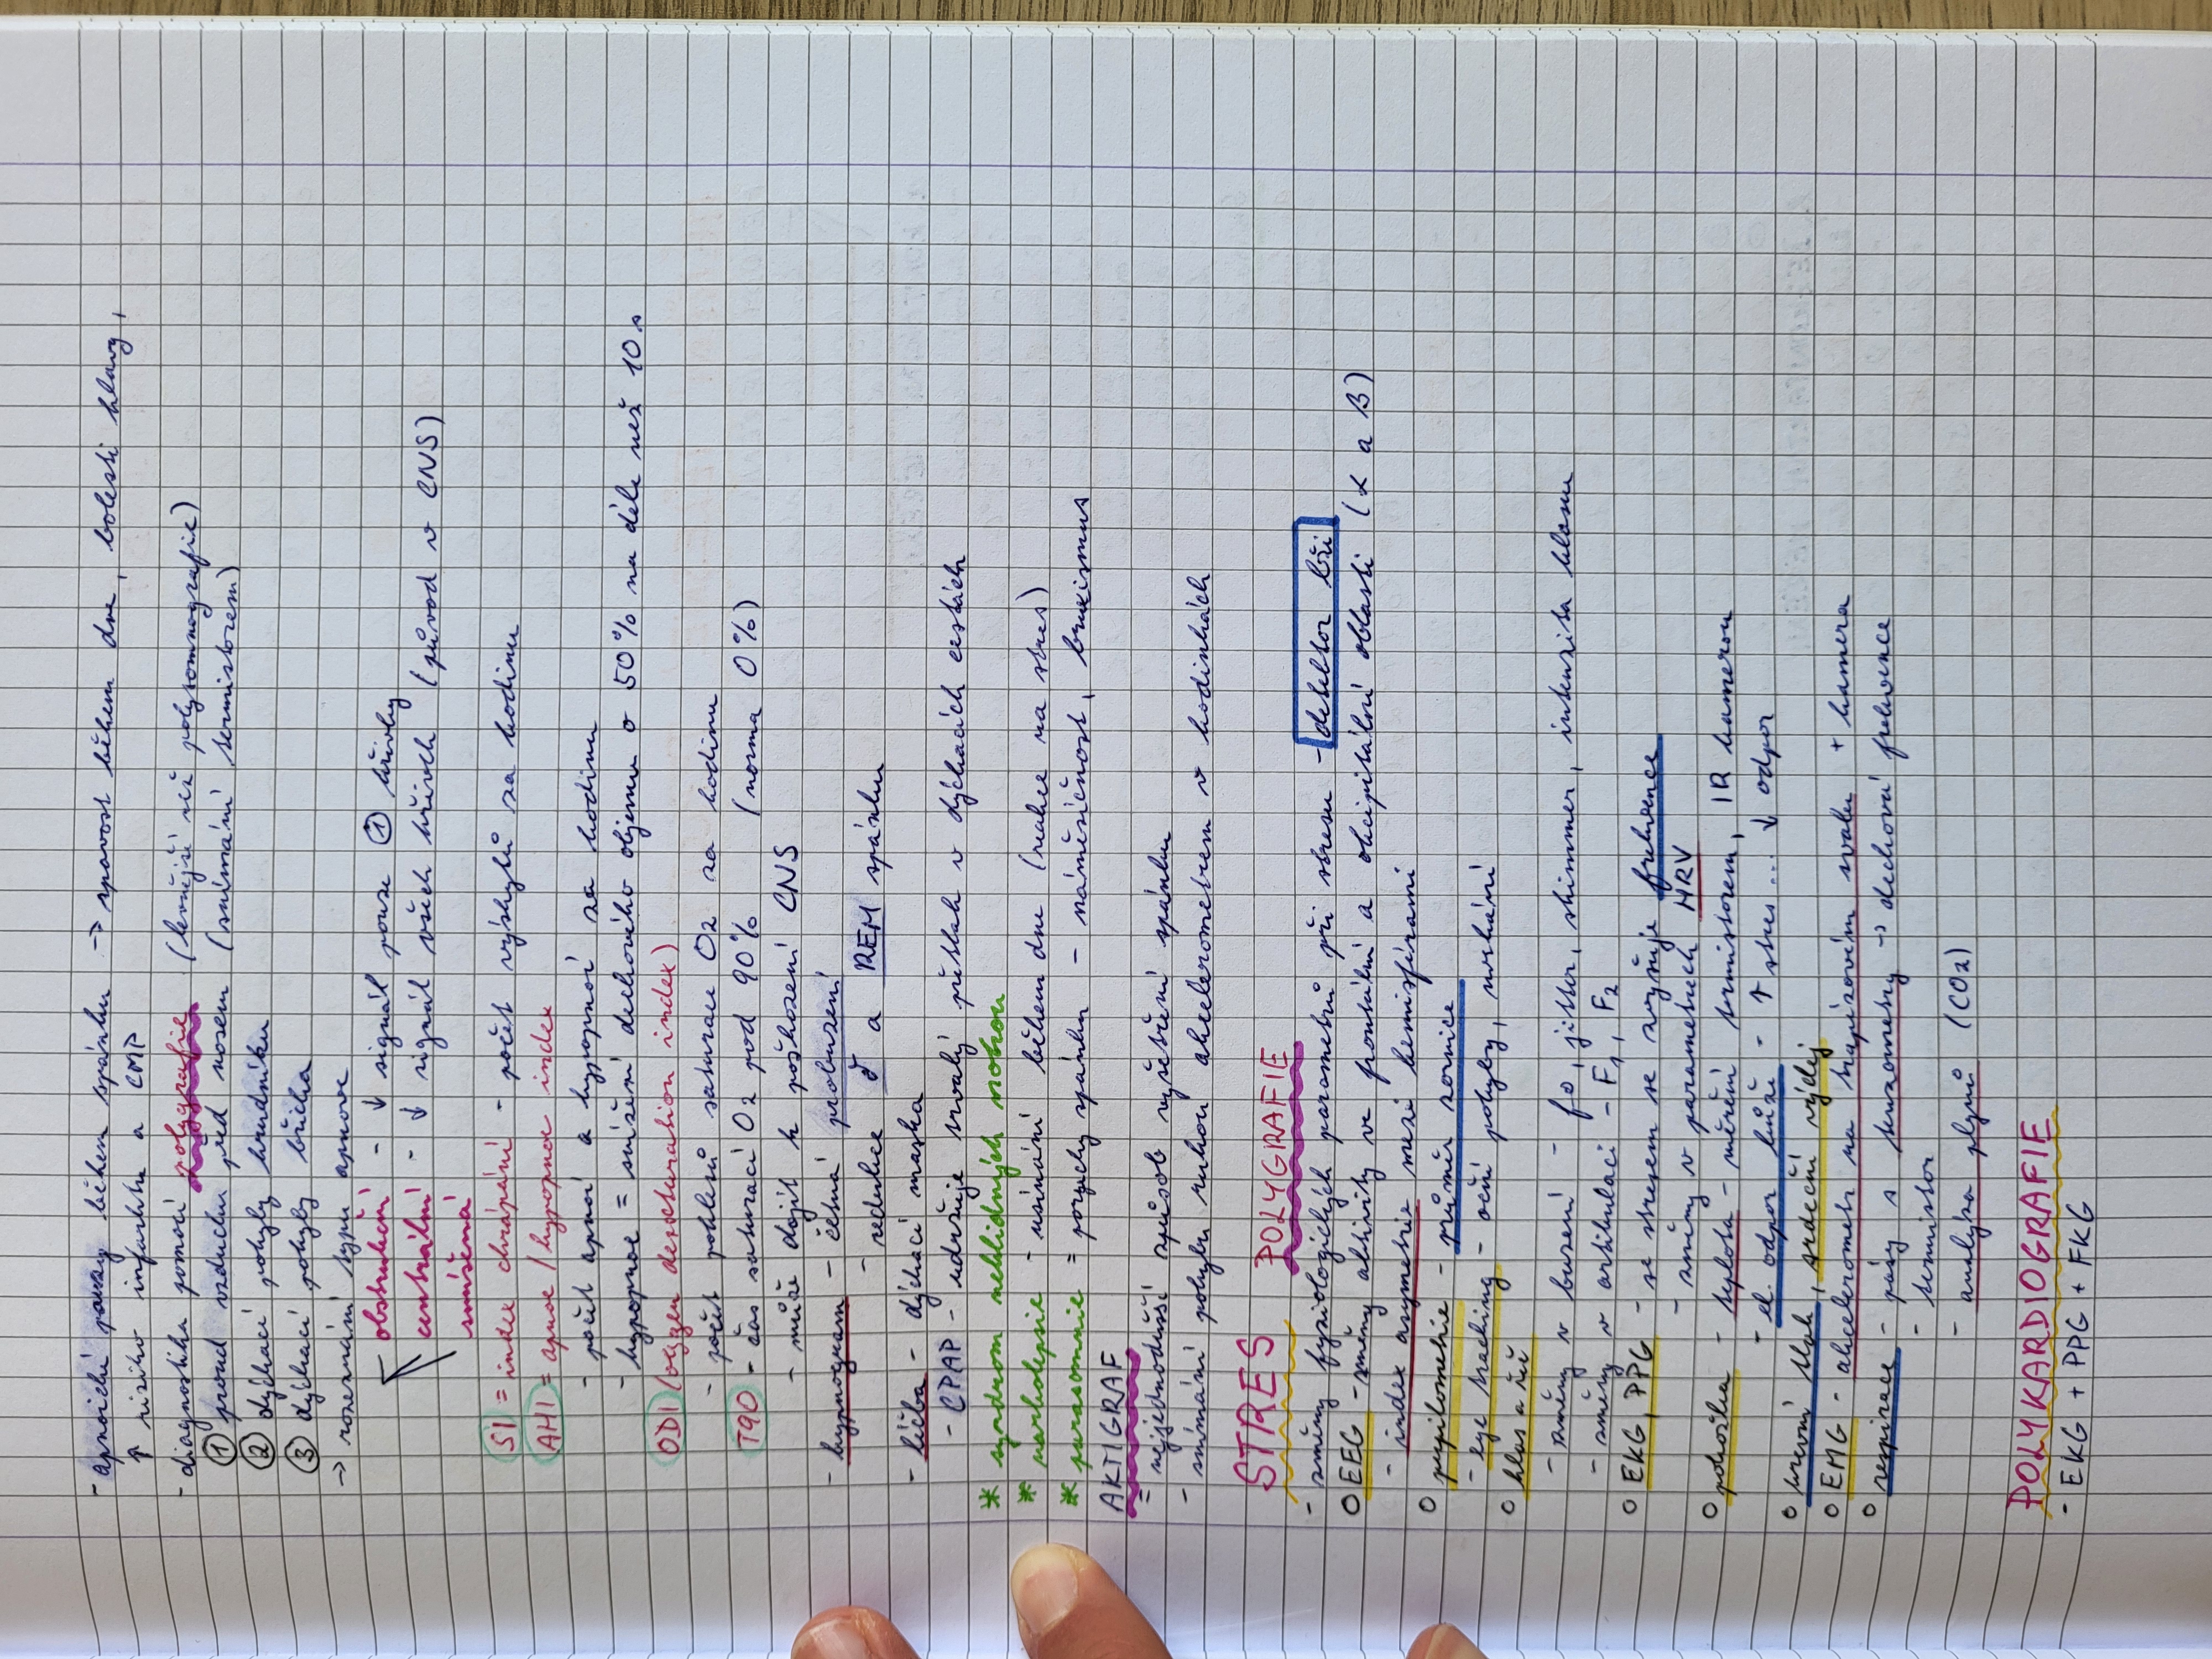 - apnoické pauzy během spánku → spavost během dne, bolesti hlavy,
↑ riziko infarktu a CMP
- diagnostika pomocí polygrafie (levnější než polysomnografie)
① proud vzduchu před nosem (snímání termistorem)
② dýchací pohyby hrudníku
③ dýchací pohyby břicha
→ rozeznání typu apnoe
obstrukční - ↓ signál pouze ① křivky
centrální - ↓ signál všech křivek (původ v CNS)
smíšená
SI = index chrápání - počet výskytů za hodinu
AHI = apnoe / hypopnoe index
- počet apnoí a hypopnoí za hodinu
- hypopnoe = snížení dechového objemu o 50% na déle než 10 s
ODI (oxygen desaturation index)
- počet poklesů saturace O2 za hodinu
T90 - čas saturací O2 pod 90% (norma 0%)
- může dojít k poškození CNS
- hypnogram - četná probuzení
- redukce δ a REM spánku
- léčba - dýchací maska
- CPAP - udržuje trvalý přetlak v dýchacích cestách
* syndrom neklidných nohou
* narkolepsie - usínání během dne (reakce na stres)
* parasomnie = poruchy spánku - náměsíčnost, bruxismus
AKTIGRAF
= nejjednodušší způsob vyšetření spánku
- snímání pohybu rukou akcelerometrem v hodinkách
STRES POLYGRAFIE
- změny fyziologických parametrů při stresu - detektor lži
○ EEG - změny aktivity ve frontální a okcipitální oblasti (α a β)
- index asymetrie mezi hemisférami
○ pupilometrie - průměr zornice
- eye tracking - oční pohyby, mrkání
○ hlas a řeč
- změny v buzení - f0, jitter, shimmer, intenzita hlasu
- změny v artikulaci - F1, F2
○ EKG, PPG - se stresem se zvyšuje frekvence
- změny v parametrech HRV
○ pokožka - teplota - měření termistorem, IR kamerou
- el. odpor kůže - ↑ stres ... ↓ odpor
○ krevní tlak, srdeční výdej
○ EMG - akcelerometr na trapézovém svalu + kamera
○ respirace - pásy s tenzometry → dechová frekvence
- termistor
- analýza plynů (CO2)
POLYKARDIOGRAFIE
- EKG + PPG + FKG